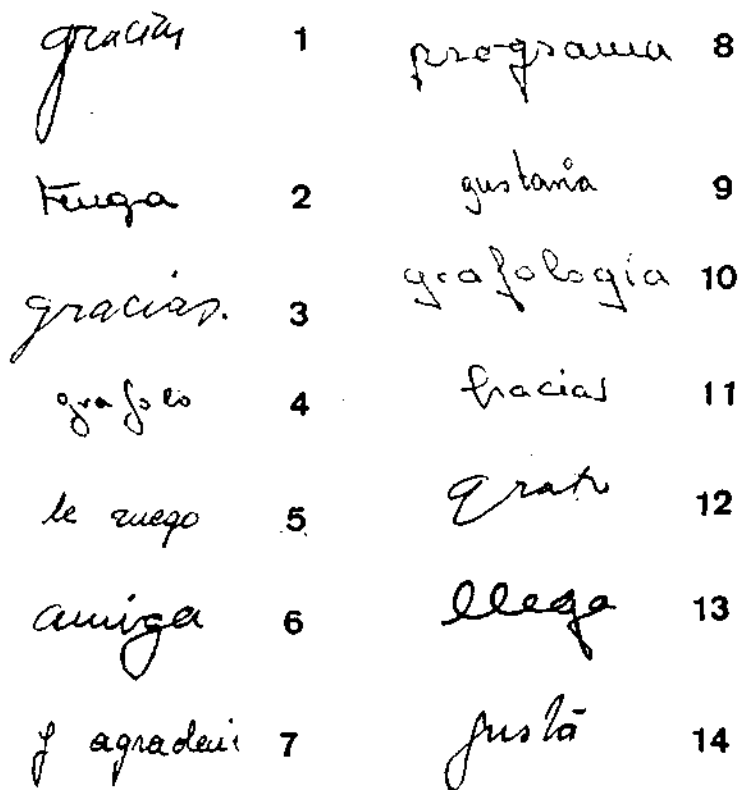 gracias 1
Tenga 2
gracias. 3
grafolo 4
le ruego 5
amiga 6
y agradeci 7
programa 8
gustaria 9
grafología 10
Gracias 11
Grat 12
llega 13
gusta 14